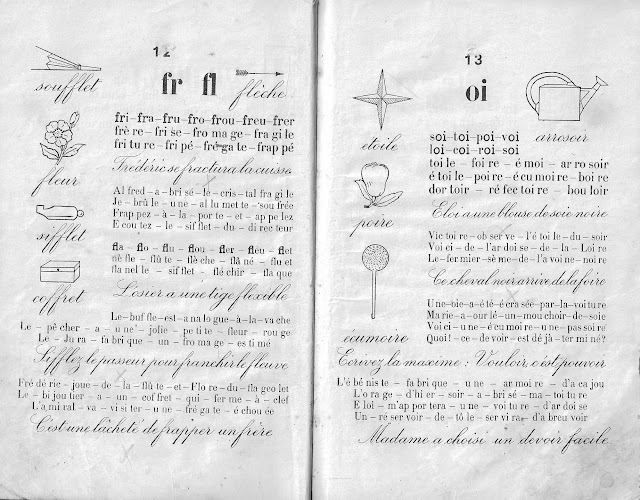 12
fr fl
soufflet
flèche
fri–fra–fru–fro–frou–freu–frer
frè re – fri se – fro ma ge – fra gi le
fri tu re – fri pé – fré ga te – frap pé
Frédéric se fractura la cuisse
fleur
Al fred – a – bri sé – le – cris – tal fra gi le
Je – brû le – u ne – al lu met te – sou frée
Frap pez – à – la – por te – et – ap pe lez
E cou tez – le – sif flet – du – di rec teur
sifflet
fla – flo – flu – flou – fler – fleu – flet
nè fle – flû te – flè che – flâ né – flu et
fla nel le – sif flet – flé chir – fla que
L'osier a une tige flexible
coffret
Le – buf fle – est – a na lo gue – à – la – va che
Le – pê cher – a – u ne – jolie – pe ti te – fleur – rou ge
Le – Ju ra – fa bri que – un – fro ma ge – es ti mé
Sifflez le passeur pour franchir le fleuve
Fré dé ric – joue – de – la – flû te – et – Flo re – du – fla geo let
Le – bi jou tier – a – un – cof fret – qui – fer me – à – clef
L'a mi ral – va – vi si ter – u ne – fré ga te – é chou ée
C'est une lâcheté de frapper un frère
13
oi
étoile
arrosoir
soi – toi – poi – voi
loi – coi – roi – soi
toi le – foi re – é moi – ar ro soir
é toi le – poi re – é cu moi re – boi re
dor toir – ré fec toi re – bou loir
Eloi a une blouse de soie noire
poire
Vic toi re – ob ser ve – l'é toi le – du – soir
Voi ci – de – l'ar doi se – de – la – Loi re
Le – fer mier – sè me – de – l'a voi ne – noi re
Ce cheval noir arrive de la foire
écumoire
U ne – oie – a – é té – é cra sée – par – la – voi tu re
Ma rie – a – our lé – un – mou choir – de – soie
Voi ci – u ne – é cu moi re – u ne – pas soi re
Quoi ! – ce – de voir – est – dé jà – ter mi né ?
Ecrivez la maxime : Vouloir, c'est pouvoir
L'é bé nis te – fa bri que – u ne – ar moi re – d'a ca jou
L'o ra ge – d'hi er – soir – a – bri sé – ma – toi tu re
E loi – m'ap por te ra – u ne – voi tu re – d'ar doi se
Un – ré ser voir – de – tô le – ser vi ra – d'a breu voir
Madame a choisi un devoir facile